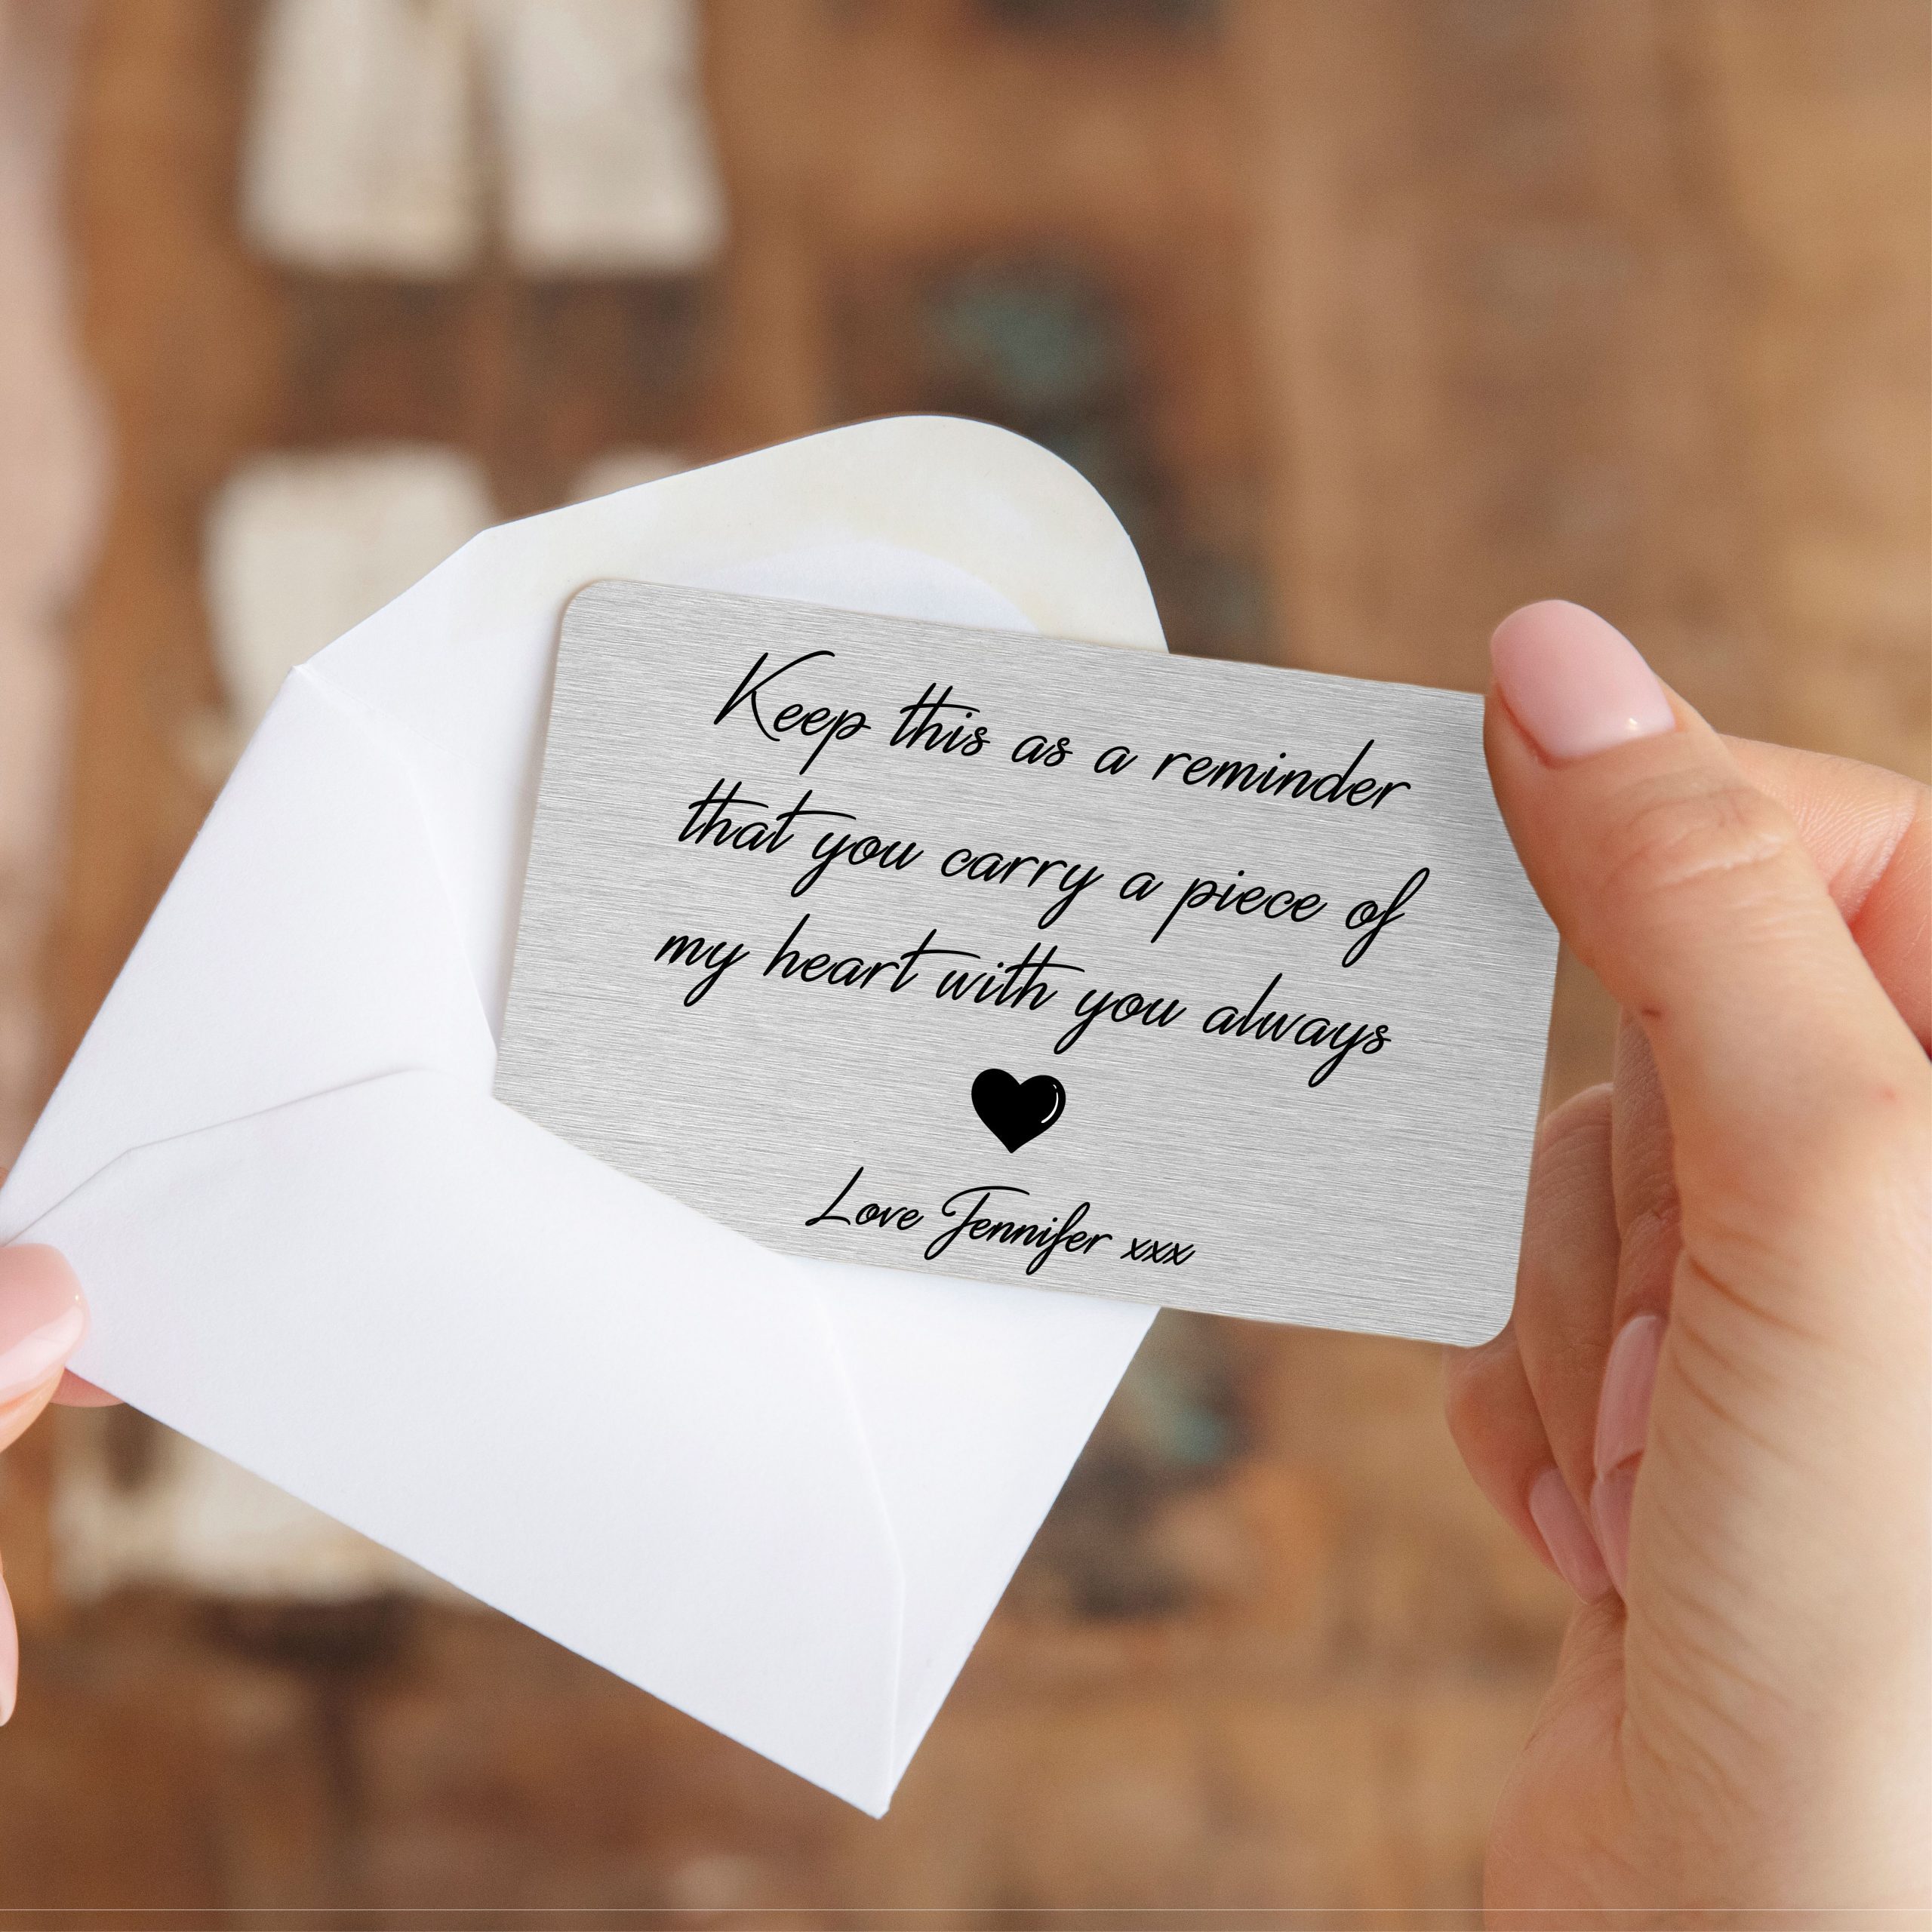 Keep this as a reminder
that you carry a piece of
my heart with you always
Love Jennifer xxx